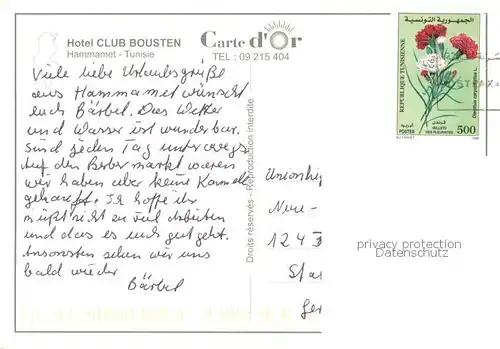 Hotel CLUB BOUSTEN
Hammamet - Tunisie
Carte d'Or
TEL : 09 215 404
Viele liebe Urlaubsgrüße
aus Hammamet wünscht
euch Bärbel. Das Wetter
und Wasser ist wunderbar.
Sind jeden Tag unterwegs
Auf den Berbermarkt waren
wir haben aber keine Kamele
gekauft. Ich hoffe ihr
müßt nicht zu viel Arbeiten
und das es euch gut geht.
Ansonsten sehen wir uns
bald wieder
Bärbel
Droits réservés - Reproduction interdite
الجمهورية التونسية
REPUBLIQUE TUNISIENNE
قرنفل
POSTES
البريد
ŒILLETS
DES FLEURISTES
500
Neu-
1243
Sta
Ger
privacy protection
Datenschutz